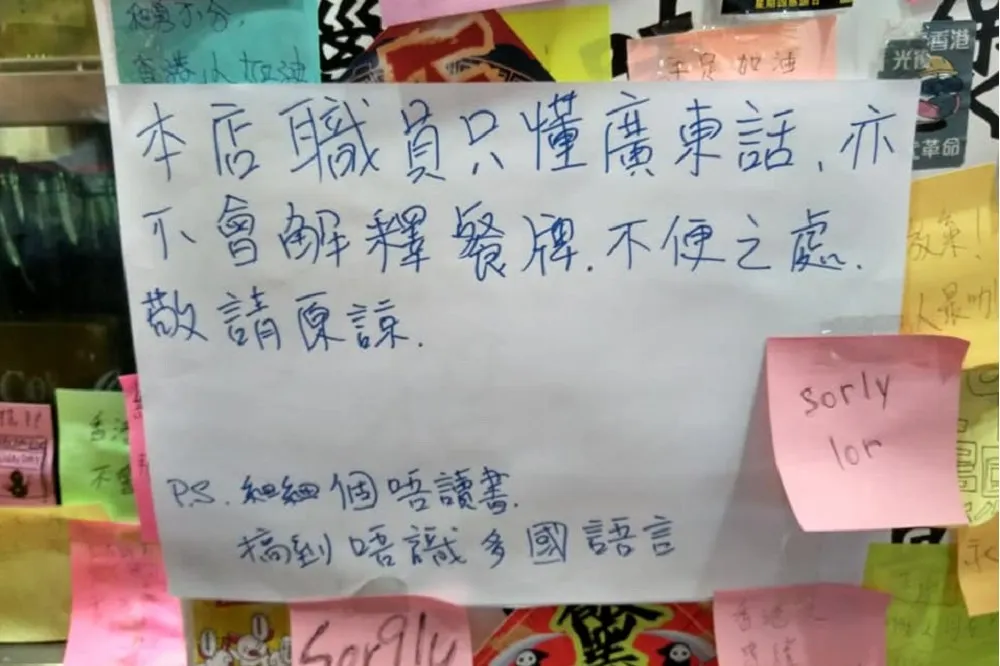 香港人加油
香港
光復
革命
本店職員只懂廣東話、亦
不會解釋餐牌.不便之處.
敬請原諒.
加油
sorly
lor
P.S.細細個唔讀書.
搞到唔識多國語言
香港
Sorgly